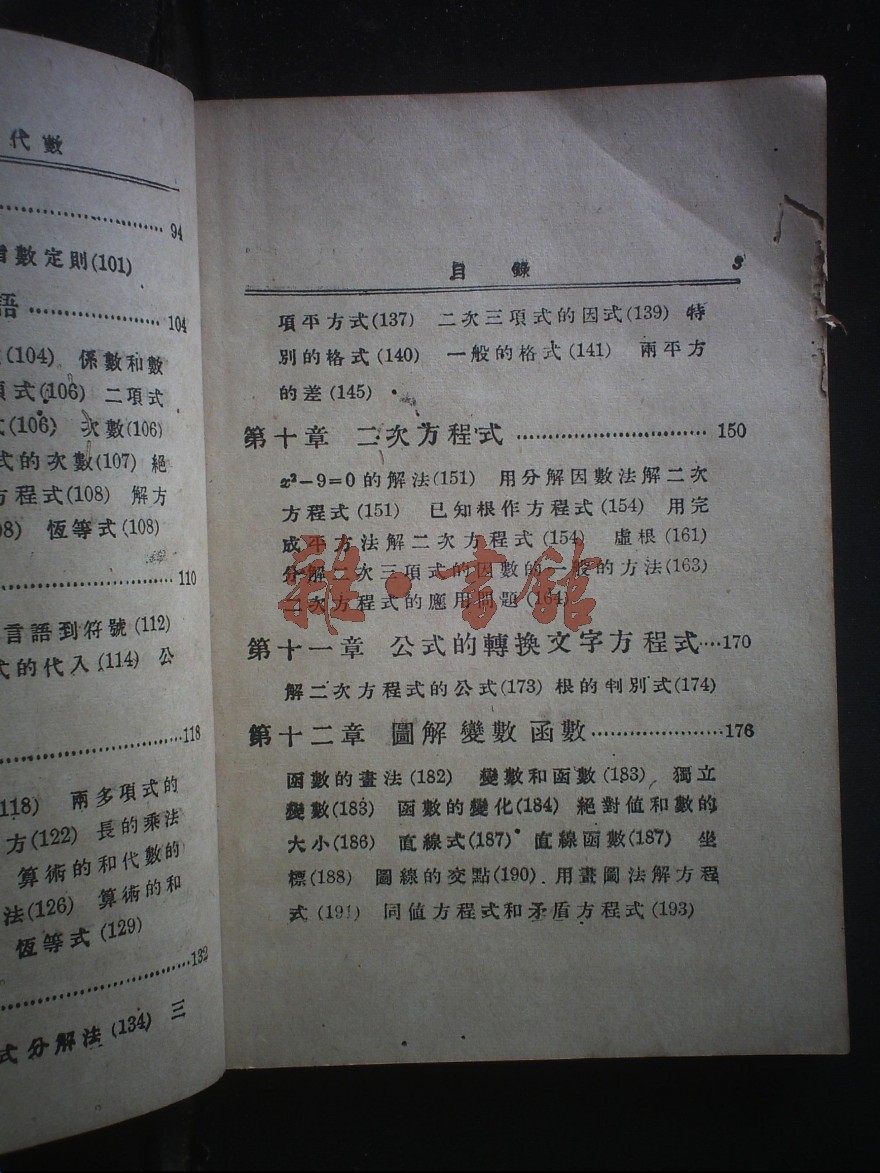 代數
94
數定則(101)
語 104
(104) 係數和數
項式(106) 二項式
式(106) 次數(106)
式的次數(107) 絕
方程式(108) 解方
08) 恆等式(108)
110
言語到符號(112)
式的代入(114) 公
118
118) 兩多項式的
方(122) 長的乘法
算術的和代數的
法(126) 算術的和
恆等式(129)
132
式分解法(134) 三
目錄 3
項平方式(137) 二次三項式的因式(139) 特
別的格式(140) 一般的格式(141) 兩平方
的差(145)
第十章 二次方程式 150
x²-9=0的解法(151) 用分解因數法解二次
方程式(151) 已知根作方程式(154) 用完
成平方法解二次方程式(154) 虛根(161)
分解二次三項式的因數的一般的方法(163)
二次方程式的應用問題(164)
雜·書館
第十一章 公式的轉換文字方程式…170
解二次方程式的公式(173) 根的判別式(174)
第十二章 圖解 變數 函數 176
函數的畫法(182) 變數和函數(183) 獨立
變數(183) 函數的變化(184) 絕對值和數的
大小(186) 直線式(187) 直線函數(187) 坐
標(188) 圖線的交點(190) 用畫圖法解方程
式(191) 同値方程式和矛盾方程式(193)